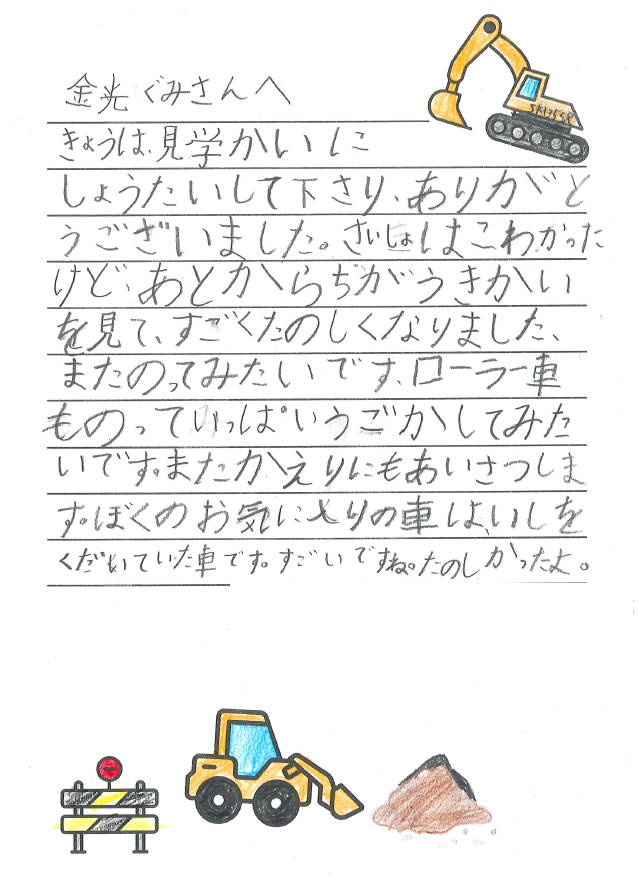 金光ぐみさんへ
SK135SR
きょうは、見学かいに
しょうたいして下さり、ありがと
うございました。さいしょはこわかった
けど、あとからちがうきかい
を見て、すごくたのしくなりました、
またのってみたいです、ローラー車
ものっていっぱいうごかしてみた
いです。またかえりにもあいさつしま
す。ぼくのお気に入りの車は、いしを
くだいていた車です。すごいですね。たのしかったよ。